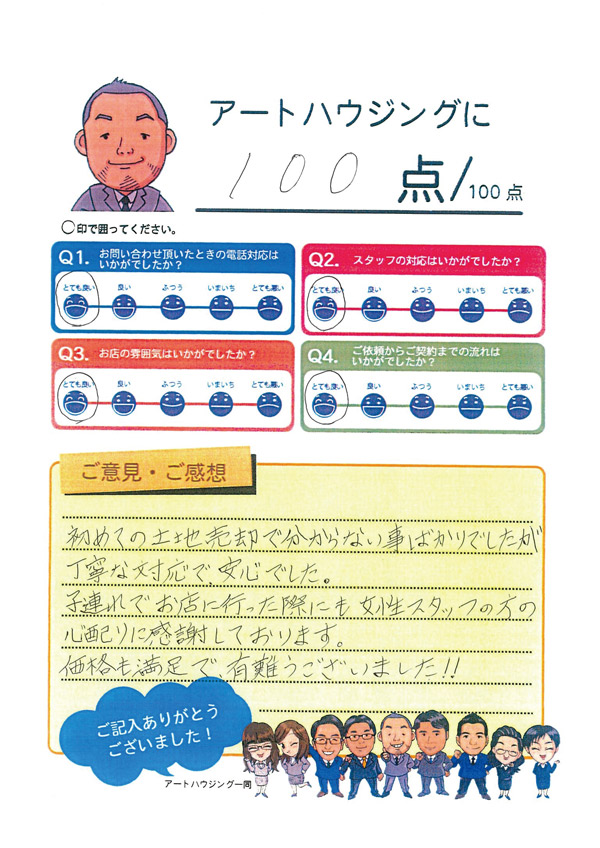 アートハウジングに
100 点/100点
○印で囲ってください。
Q1. お問い合わせ頂いたときの電話対応は
いかがでしたか？
とても良い 良い ふつう いまいち とても悪い
Q2. スタッフの対応はいかがでしたか？
とても良い 良い ふつう いまいち とても悪い
Q3. お店の雰囲気はいかがでしたか？
とても良い 良い ふつう いまいち とても悪い
Q4. ご依頼からご契約までの流れは
いかがでしたか？
とても良い 良い ふつう いまいち とても悪い
ご意見・ご感想
初めての土地売却で分からない事ばかりでしたが
丁寧な対応で、安心でした。
子連れでお店に行った際にも女性スタッフの方の
心配りに感謝しております。
価格も満足で、有難うございました!!
ご記入ありがとう
ございました！
アートハウジング一同